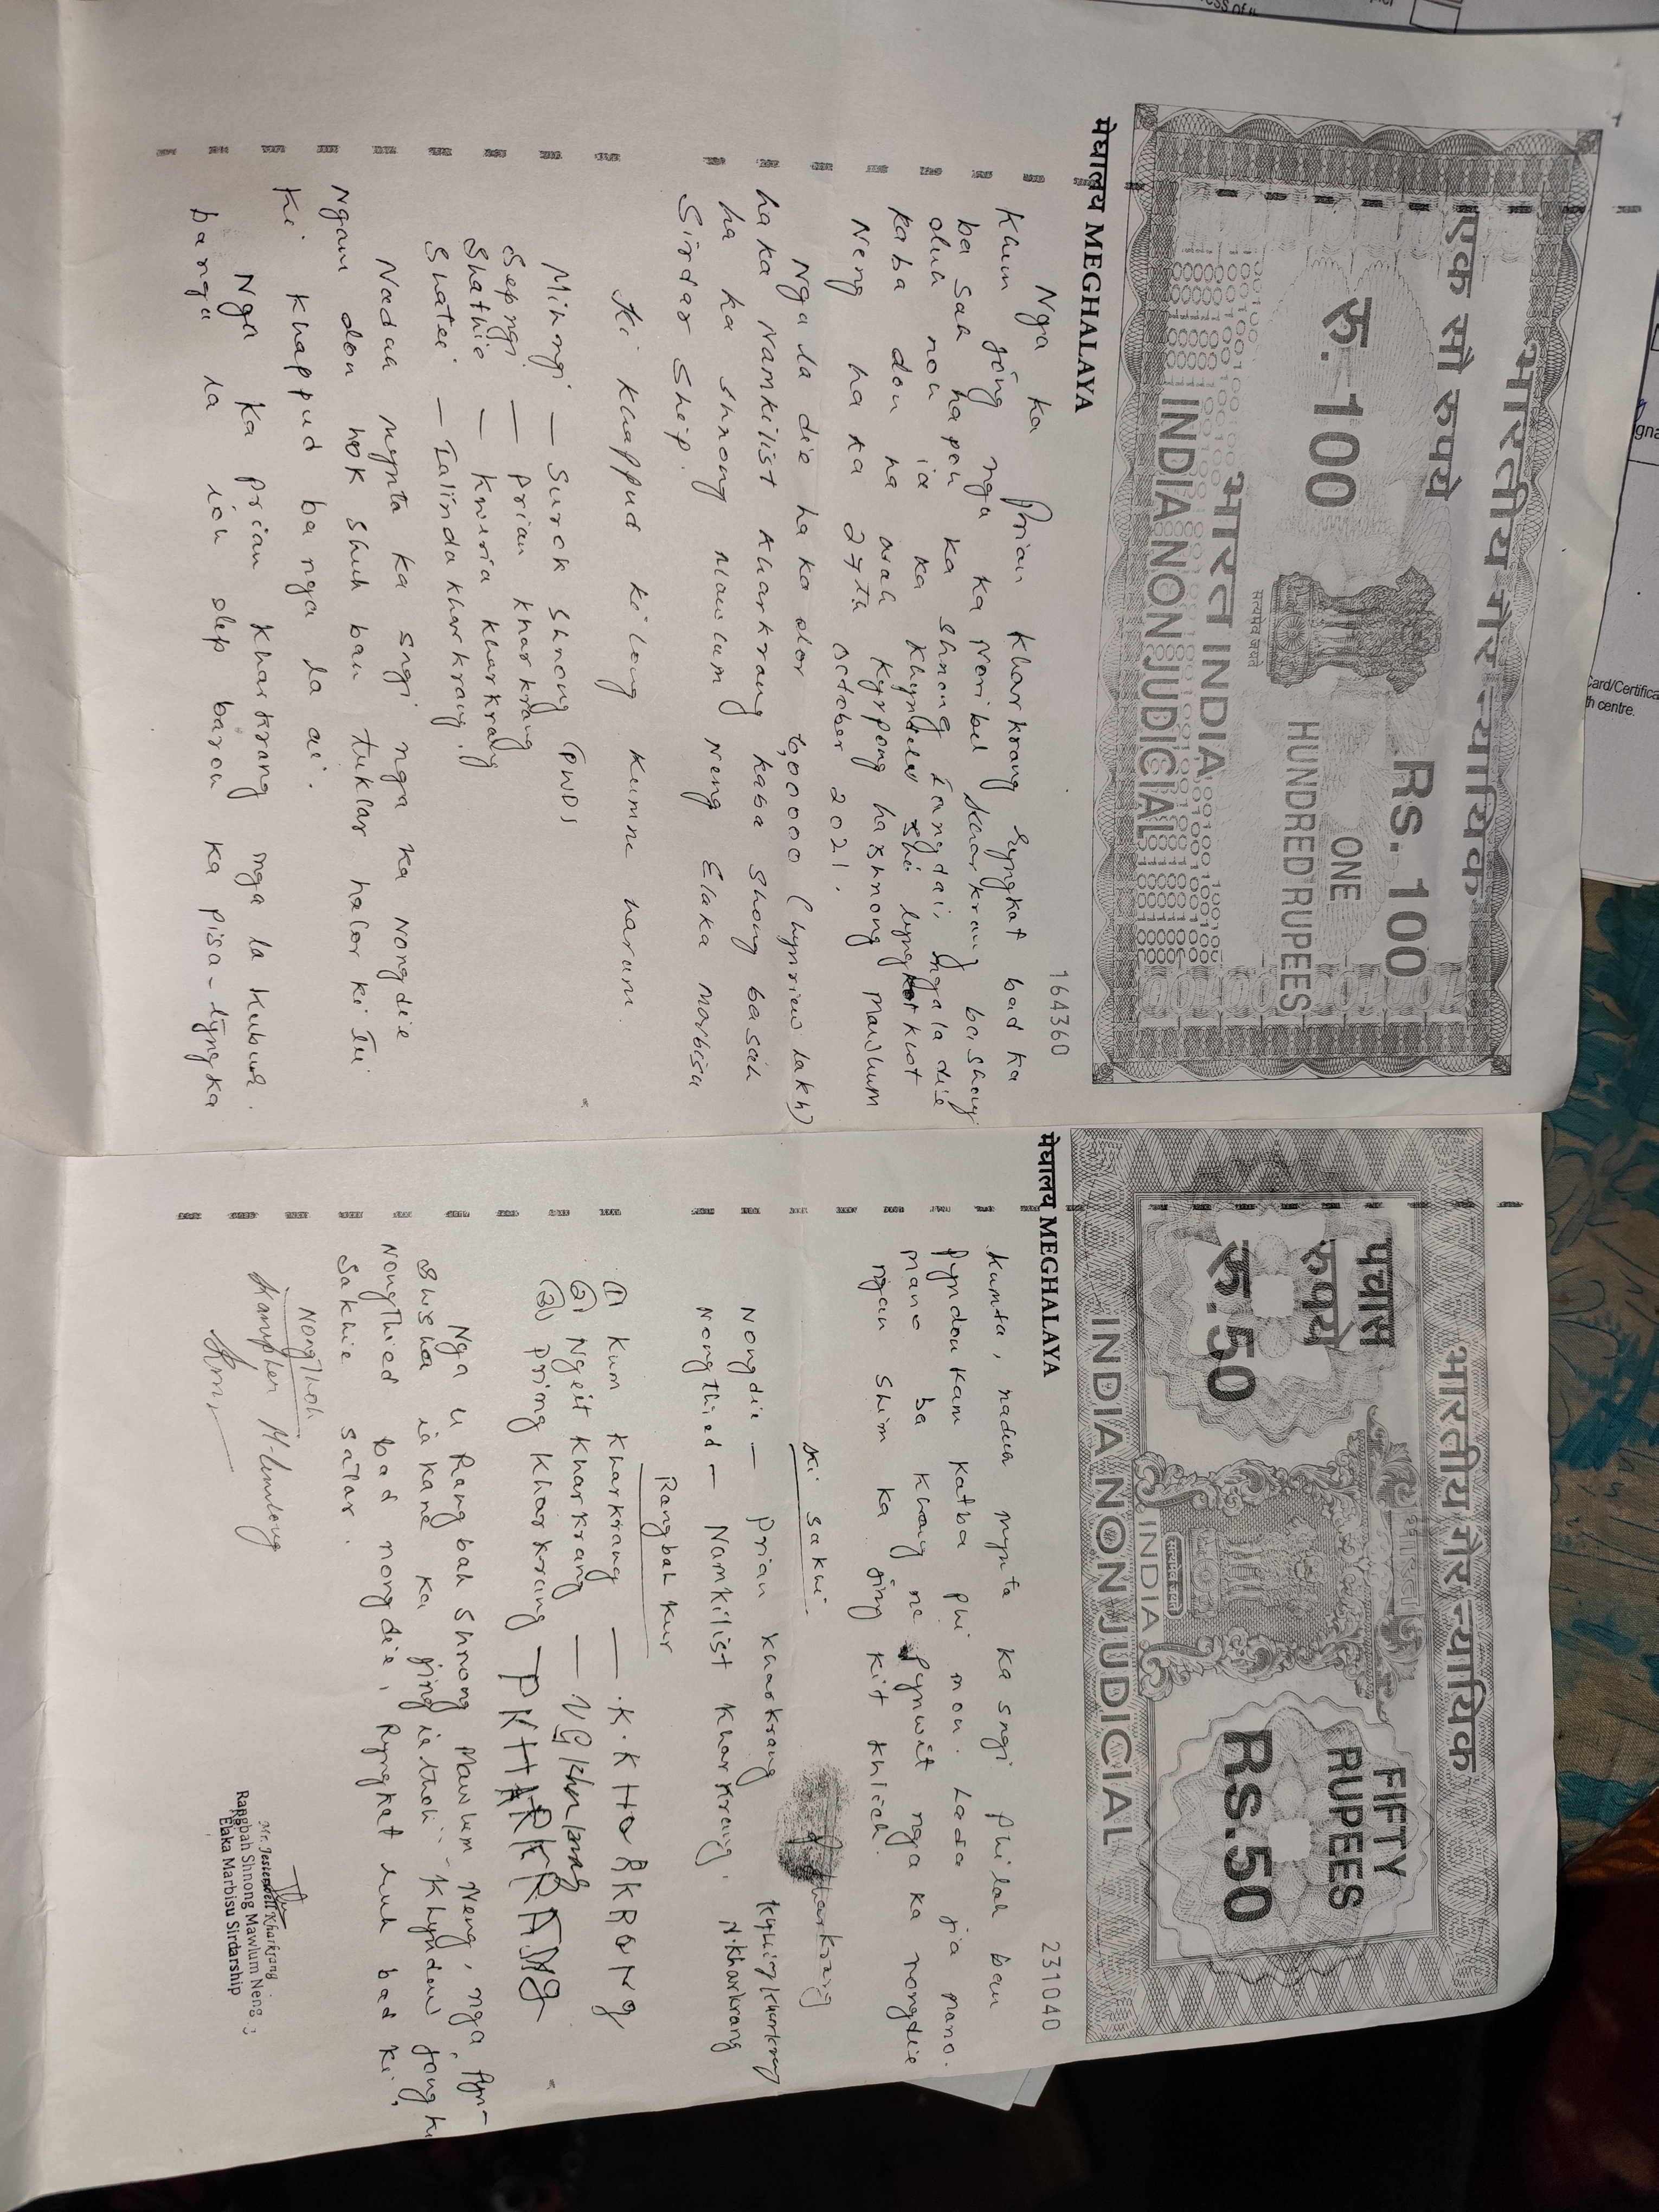 भारतीय गैर न्यायिक
एक सौ रुपये
रु. 100
Rs. 100
ONE
HUNDRED RUPEES
सत्यमेव जयते
भारत INDIA
INDIA NON JUDICIAL
मेघालय MEGHALAYA
164360
Nga ka Prian Kharkrang Ryngkat bad ka
Khun jong nga ka Noribel Kharkrang bashong
ba sah hapoh ka shnong Iangdai, nga la die
duh noh ia ka Khyndew shi lyngkot
kaba don na wah Kyrpong ha shnong Mawlum
Neng ha ka 27th October 2021.
Nga la die ha ka dor 6,00000 (hynriew lakh)
ha ka Namkilist Kharkrang kaba shong basah
ha ka shnong Mawlum Neng Elaka Marbisu
Sirdar Ship.
Ki Khappud ki long kumne harum.
Mihngi — Surok shnong (PWD)
Sepngi — Prian Kharkrang
Shathie — Kwiria Kharkrang
Shatei — Ialinda Kharkrang.
Naduh mynta ka sngi nga ka nongdie
Ngam don hok shuh ban tuklar halor ki
Ki Khappud ba nga la ai.
Nga ka Prian Kharkrang nga la kubur
ba nga la ioh dep baroh ka pisa-tyngka
भारतीय गैर न्यायिक
पचास
रुपये
रु. 50
FIFTY
RUPEES
Rs. 50
भारत
सत्यमेव जयते
INDIA
INDIA NON JUDICIAL
मेघालय MEGHALAYA
231040
Kumta, naduh mynta ka sngi phi lah ban
pyndonkam katba phi mon. Lada jia mano
mano ba khang ne pynwit nga ka nongdie
ngan shim ka jingkit khlieh.
Ki Sakhi.
Kharkrang
Nongdie — Prian Kharkrang
Nongthied — Namkilist Kharkrang. N.Kharkrang
Rangbah Kur
(1) Kum Kharkrang — K.KHARKRANG
(2) Ngeit Kharkrang —
(3) Pring Kharkrang — PKHARKRANG
Nga u Rangbah Shnong Mawlum Neng, nga pyn-
shisha ia kane ka jingiathoh - Khyndew jong ki
Nongthied bad nongdie, Ryngkat ruh bad ki
Sakhie salar.
Nongthoh
Rangbah Shnong Mawlum Neng
Elaka Marbisu Sirdarship